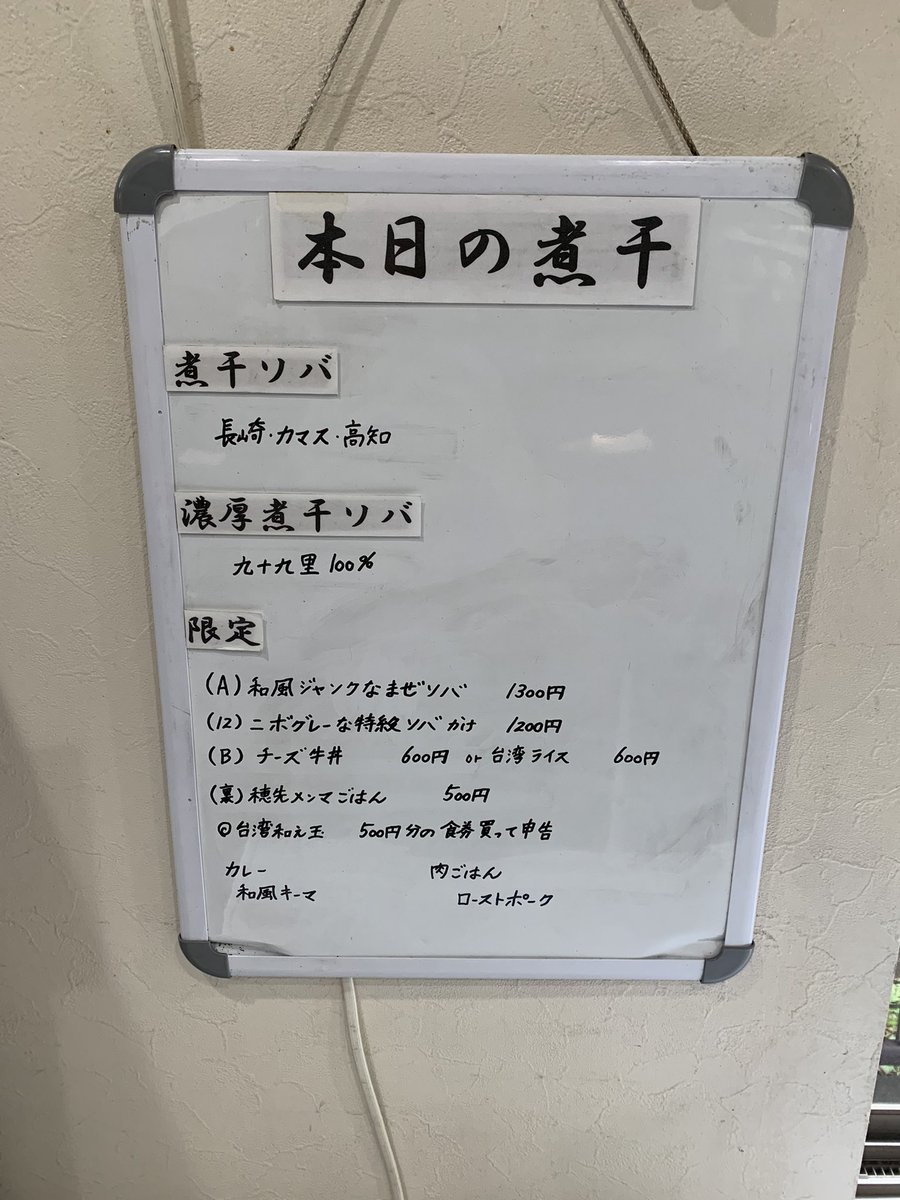 本日の煮干
煮干ソバ
長崎・カマス・高知
濃厚煮干ソバ
九十九里 100%
限定
(A) 和風ジャンクなまぜソバ 1300円
(12) ニボグレーな特級ソバ かけ 1200円
(B) チーズ牛丼 600円 or 台湾ライス 600円
(裏) 穂先メンマごはん 500円
◎台湾和え玉 500円分の食券買って申告
カレー 肉ごはん
和風キーマ ローストポーク